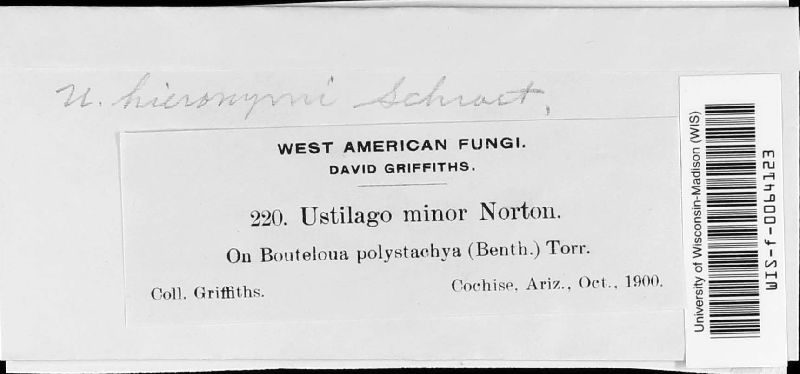 U. hieronymi Schroet,
WEST AMERICAN FUNGI.
DAVID GRIFFITHS.
220. Ustilago minor Norton.
On Bouteloua polystachya (Benth.) Torr.
Coll. Griffiths. Cochise, Ariz., Oct., 1900.
University of Wisconsin-Madison (WIS)
WIS-f-0064123